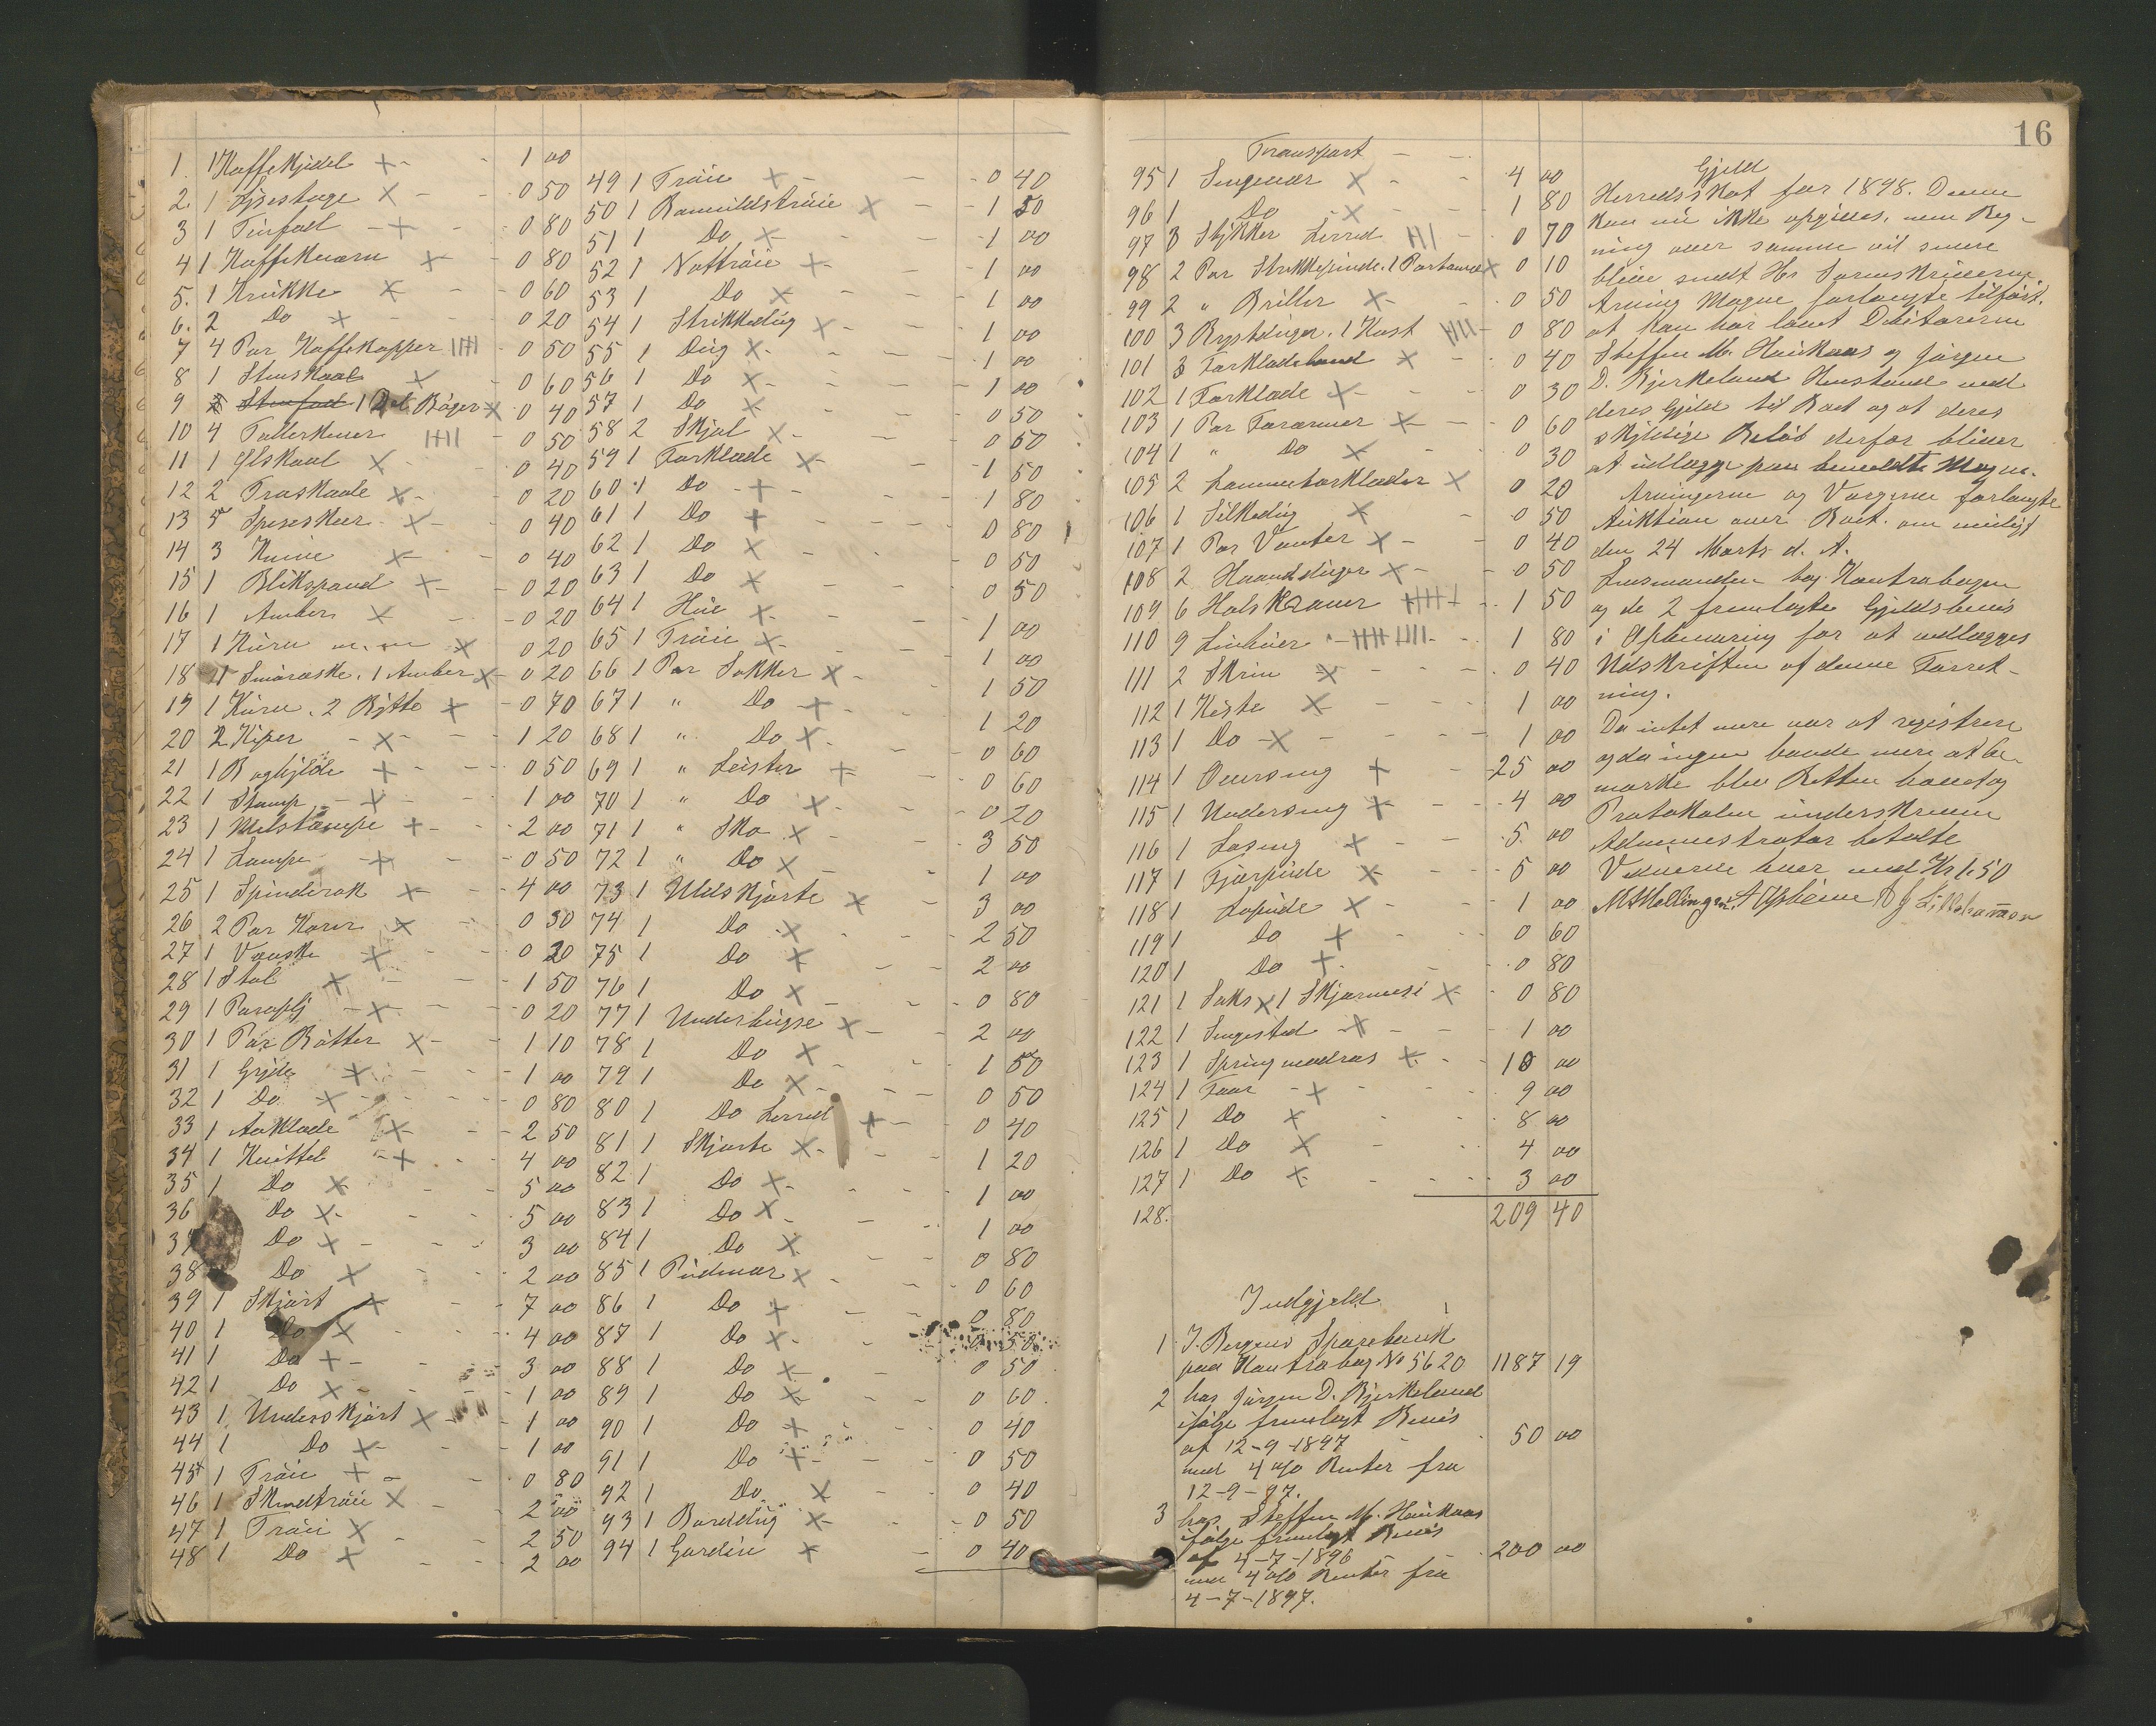 1. 1 Kaffekjedel 1 00
2. 1 Lysestage 0 50
3 1 Tinfad 0 80
4 1 Kaffekværn 0 80
5. 1 Krukke 0 60
6. 2 Do 0 20
7 4 Par Kaffekopper 0 50
8 1 Stenskaal 0 60
9 1 Del Bøger 0 40
10 4 Tallerkener 0 50
11 1 Ølskaal 0 40
12 2 Træskaale 0 20
13 5 Spiseskeer 0 40
14 3 Knive 0 40
15 1 Blikspand 0 20
16 1 Amber 0 20
17 1 Kurv m. m 0 20
18 1 Smøræske, 1 Amber 0 20
19 1 Kurv, 2 Bøtte 0 70
20 2 Kiper 1 20
21 1 Baghjelle 0 50
22 1 Stamp 1 00
23 1 Melstampe 2 00
24 1 Lampe 0 50
25 1 Spinderok 4 00
26 2 Par Karer 0 30
27 1 Væske 0 20
28 1 Stol 1 50
29 1 Paraply 0 20
30 1 Par Bøtter 1 10
31 1 Gryde 1 00
32 1 Do 0 80
33 1 Aaklæde 2 50
34 1 Knittel 4 00
35 1 Do 5 00
36 Do 5 00
37 Do 3 00
38 Do 2 00
39 1 Skjørt 7 00
40 1 Do 4 00
41 1 Do 3 00
42 1 Do 1 00
43 1 Underskjørt 1 00
44 1 Do 1 00
45 1 Trøie 0 80
46 1 Skindtrøie 2 00
47 1 Trøie 2 50
48 1 Do 2 00
49 1 Trøie 0 40
50 1 Bomuldstrøie 1 50
51 1 Do 1 00
52 1 Nattrøie 1 00
53 1 Do 1 00
54 1 Strikkedug 1 00
55 1 Dug 1 00
56 1 Do 1 00
57 1 Do 0 50
58 2 Skjal 0 50
59 1 Forklæde 1 50
60 1 Do 1 80
61 1 Do 0 80
62 1 Do 0 50
63 1 Do 0 50
64 1 Hue 1 00
65 1 Trøie 1 00
66 1 Par Sokker 1 50
67 1 " Do 1 20
68 1 " Do 0 60
69 1 " Leister 0 60
70 1 " Do 0 20
71 1 " Sko 3 50
72 1 " Do 1 00
73 1 Uldskjorte 3 00
74 1 Do 2 50
75 1 Do 2 00
76 1 Do 0 80
77 1 Underbugse 2 00
78 1 Do 1 50
79 1 Do 0 50
80 1 Do Lerred 0 40
81 1 Skjorte 1 20
82 1 Do 1 00
83 1 Do 1 00
84 1 Do 0 80
85 1 Pudevar 0 60
86 1 Do 0 80
87 1 Do 50
88 1 Do 0 50
89 1 Do 0 60
90 1 Do 0 40
91 1 Do 0 50
92 1 Do 0 40
93 1 Borddug 0 50
94 1 Gardin 0 40
16
Transport 4 00
95 1 Sengevær 1 80
96 1 Do 0 70
97 3 Stykker Lerred 0 10
98 2 Par Strikkepinde, 1 0 50
99 2 " Briller 0 80
100 3 Brystduger, 1 Kost 0 40
101 3 Forklædebaand 0 30
102 1 Forklæde 0 60
103 1 Par Forærmer 0 30
104 1 " Do 0 20
105 2 Lommetørklæder 0 50
106 1 Silkedug 0 40
107 1 Par Vanter 0 50
108 2 Haandduger 1 50
109 6 Halskraver 1 80
110 9 Linhuer 0 40
111 2 Skrin 1 00
112 1 Kiste 1 00
113 1 Do 25 00
114 1 Overseng 4 00
115 1 Underseng 5 00
116 1 Løseng 5 00
117 1 Fjærpude 1 00
118 1 Løpude 0 60
119 1 Do 0 80
120 1 Do 0 80
121 1 Saks 1 1 00
122 1 Sengested 10 00
123 1 Springmadras 9 00
124 1 Faar 8 00
125 1 Do 4 00
126 1 Do 3 00
127 1 Do
128. 209 40
Indgjeld
1 I. Bergens Sparebank
paa Kontrabog No 5620 1187 19
2 hos Jørgen D. Bjerkeland
ifølge fremlagt Bevis
af 12-9-1897 50 00
med 4 % Renter fra
12-9-97.
3 hos Steffen M. Haukaas
ifølge fremlagt Bevis
af 4-7-1896 200 00
med 4 % Renter fra
4-7-1897.
Gjeld
Herredsskat for 1898. Denne
kan nu ikke opgives, men Reg-
ning over samme vil senere
blive sendt Hr Sorenskriveren
Arving Mogne forlangte tilført,
at han har lovet Debitorerne
Steffen M. Haukaas og Jørgen
D. Bjerkeland Henstand med
deres Gjeld til Boet og at deres
skyldige Beløb derfor bliver
at udlægge paa bemeldte Mogne.
Arvingerne og Værgerne forlangte
Auktion over Boet om muligt
den 24 Marts d. A.
Lensmanden tog Kontrabogen
og de 2 fremlagte Gjeldsbevis
i Opbevaring for at vedlægges
Udskriften af denne Forret-
ning.
Da intet mere var at registrere
og da ingen havde mere at be-
mærke blev Retten hævet og
Protokolen underskreven
Administrator betalte
Vidnerne hver med Kr 1.50